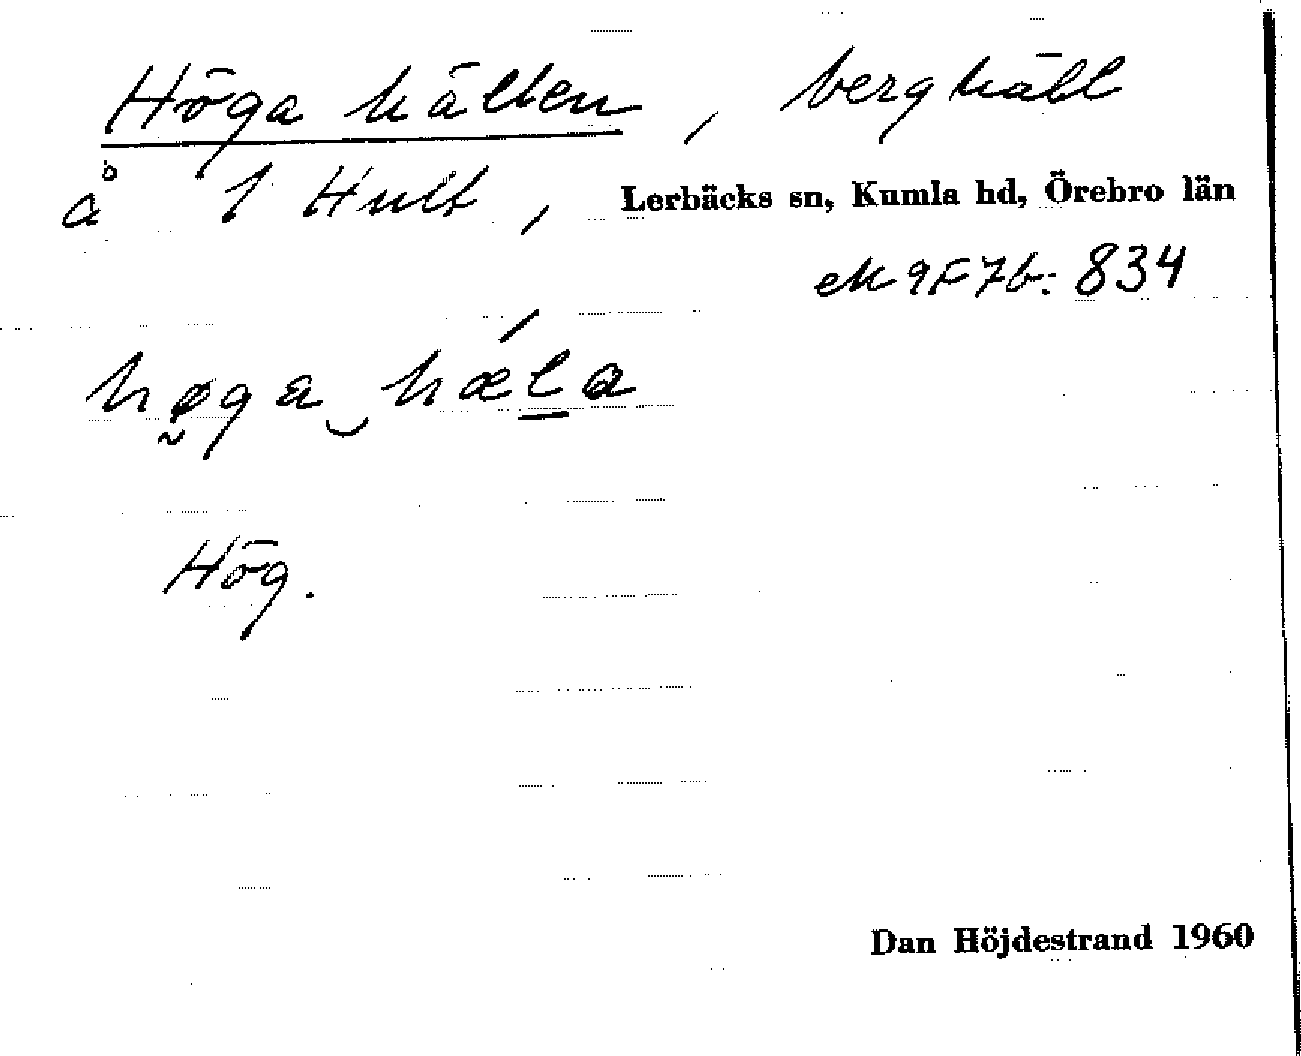 Höga hällen, berghäll
å 1 Hult, Lerbäcks sn, Kumla hd, Örebro län
ek 9F7b: 834
høga hæla
Hög.
Dan Höjdestrand 1960